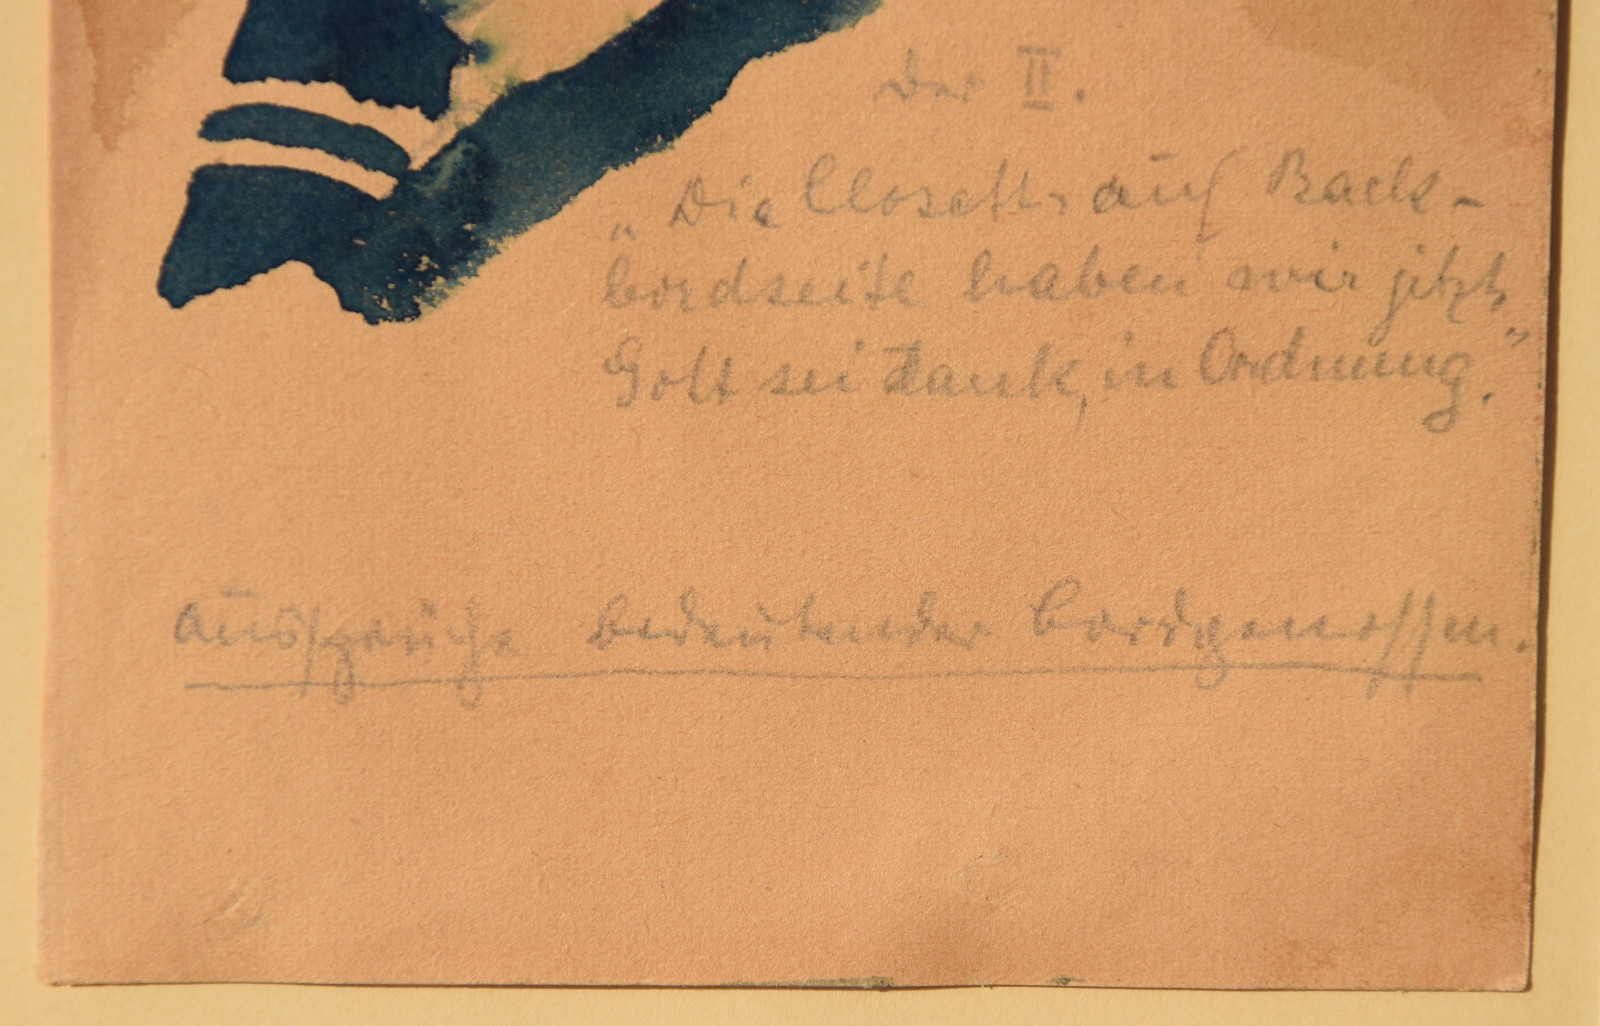 Der II.
„Die Closetts auf Back-
bordseite haben wir jetzt,
Gott sei Dank, in Ordnung.”
Aussprüche bedeutender Bordgenossen.